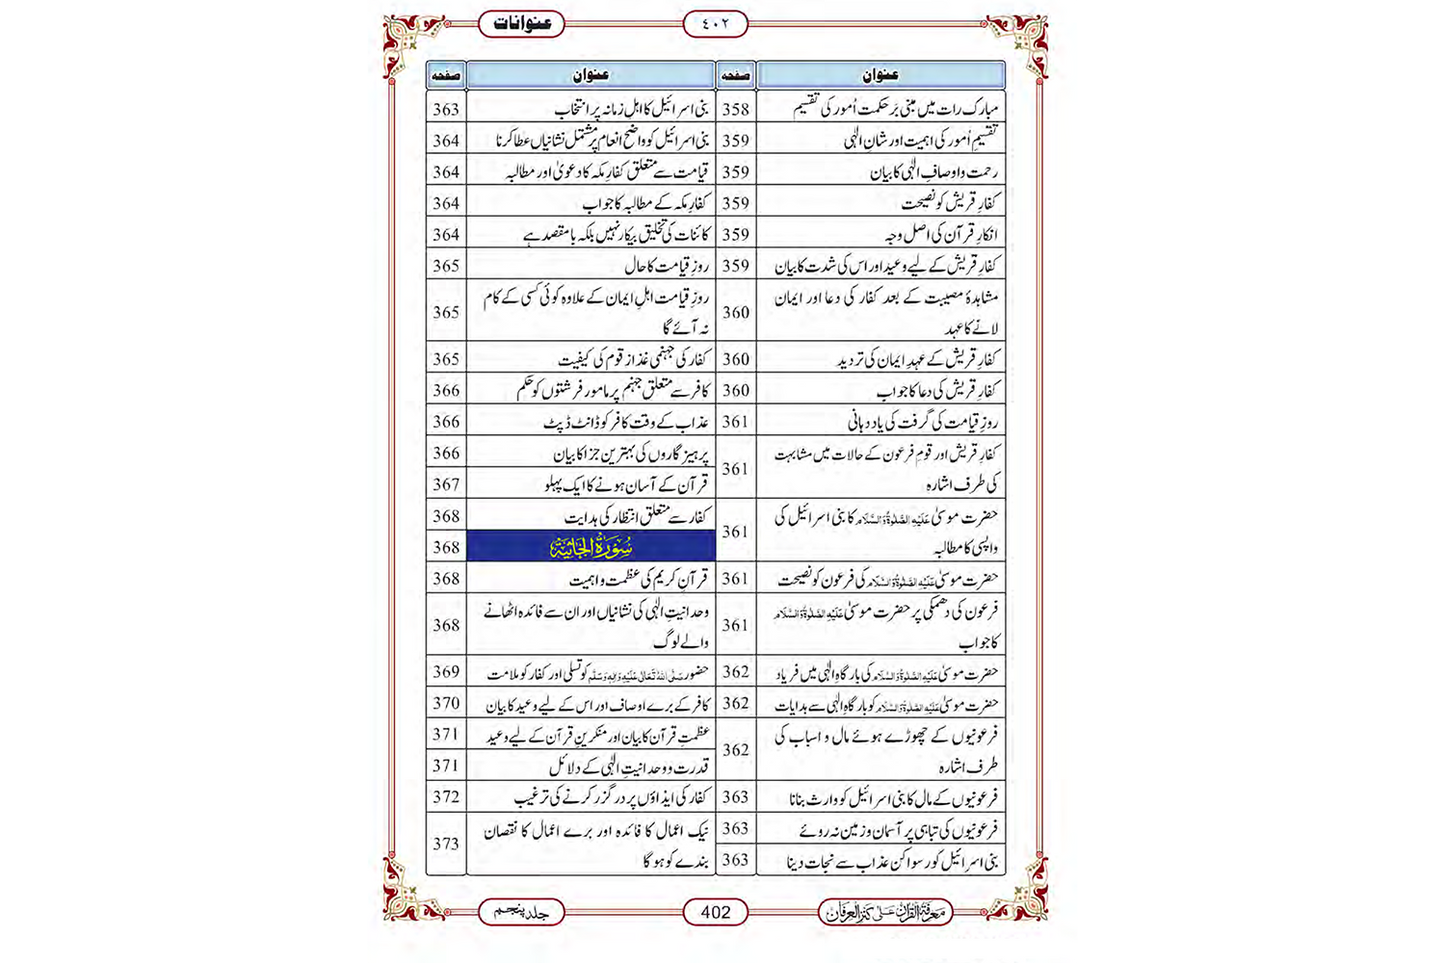 عنوانات
٤٠٢
عنوان صفحہ
مبارک رات میں مبنی بَر حکمت اُمور کی تقسیم 358
تقسیمِ اُمور کی اہمیت اور شانِ الٰہی 359
رحمت و اوصافِ الٰہی کا بیان 359
کفارِ قریش کو نصیحت 359
انکارِ قرآن کی اصل وجہ 359
کفارِ قریش کے لیے وعید اور اس کی شدت کا بیان 359
مشاہدۂ مصیبت کے بعد کفار کی دعا اور ایمان
لانے کا عہد 360
کفارِ قریش کے عہدِ ایمان کی تردید 360
کفارِ قریش کی دعا کا جواب 360
روزِ قیامت کی گرفت کی یاد دہانی 361
کفارِ قریش اور قومِ فرعون کے حالات میں مشابہت
کی طرف اشارہ 361
حضرت موسیٰ عَلَیْہِ الصَّلٰوۃُ وَالسَّلَام کا بنی اسرائیل کی
واپسی کا مطالبہ 361
حضرت موسیٰ عَلَیْہِ الصَّلٰوۃُ وَالسَّلَام کی فرعون کو نصیحت 361
فرعون کی دھمکی پر حضرت موسیٰ عَلَیْہِ الصَّلٰوۃُ وَالسَّلَام
کا جواب 361
حضرت موسیٰ عَلَیْہِ الصَّلٰوۃُ وَالسَّلَام کی بارگاہِ الٰہی میں فریاد 362
حضرت موسیٰ عَلَیْہِ الصَّلٰوۃُ وَالسَّلَام کو بارگاہِ الٰہی سے ہدایات 362
فرعونیوں کے چھوڑے ہوئے مال و اسباب کی
طرف اشارہ 362
فرعونیوں کے مال کا بنی اسرائیل کو وارث بنانا 363
فرعونیوں کی تباہی پر آسمان و زمین نہ روئے 363
بنی اسرائیل کو رسوا کن عذاب سے نجات دینا 363
عنوان صفحہ
بنی اسرائیل کا اہلِ زمانہ پر انتخاب 363
بنی اسرائیل کو واضح انعام پر مشتمل نشانیاں عطا کرنا 364
قیامت سے متعلق کفارِ مکہ کا دعویٰ اور مطالبہ 364
کفارِ مکہ کے مطالبہ کا جواب 364
کائنات کی تخلیق بیکار نہیں بلکہ با مقصد ہے 364
روزِ قیامت کا حال 365
روزِ قیامت اہلِ ایمان کے علاوہ کوئی کسی کے کام
نہ آئے گا 365
کفار کی جہنمی غذا زقوم کی کیفیت 365
کافر سے متعلق جہنم پر مامور فرشتوں کو حکم 366
عذاب کے وقت کافر کو ڈانٹ ڈپٹ 366
پرہیز گاروں کی بہترین جزا کا بیان 366
قرآن کے آسان ہونے کا ایک پہلو 367
کفار سے متعلق انتظار کی ہدایت 368
سُوْرَۃُ الْجَاثِیَۃِ 368
قرآنِ کریم کی عظمت و اہمیت 368
وحدانیتِ الٰہی کی نشانیاں اور ان سے فائدہ اٹھانے
والے لوگ 368
حضور صَلَّی اللہُ تَعَالٰی عَلَیْہِ وَاٰلِہٖ وَسَلَّم کو تسلی اور کفار کو ملامت 369
کافر کے برے اوصاف اور اس کے لیے وعید کا بیان 370
عظمتِ قرآن کا بیان اور منکرینِ قرآن کے لیے وعید 371
قدرت و وحدانیتِ الٰہی کے دلائل 371
کفار کی ایذاؤں پر درگزر کرنے کی ترغیب 372
نیک اعمال کا فائدہ اور برے اعمال کا نقصان
بندے کو ہو گا 373
معرفۃ القرآن علی کنز العرفان
402
جلد پنجم